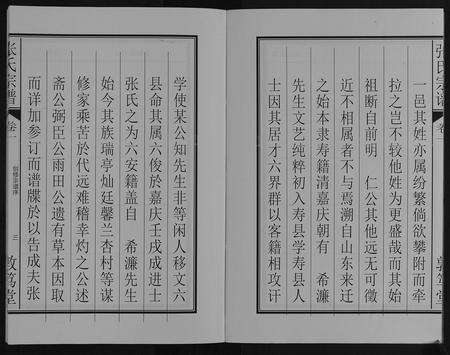 张氏宗谱
卷一
敦笃堂
一邑其姓亦属纷繁倘欲攀附而牵
拉之岂不较他姓为更盛哉而其始
祖断自前明　仁公其他远无可徵
近不相属者不与焉溯自山东来迁
之始本隶寿籍清嘉庆朝有　希濂
先生文艺纯粹初入寿县学寿县人
士因其居才六界群以客籍相攻讦
学使某公知先生非等闲人移文六
县命其属六俊於嘉庆壬戌成进士
张氏之为六安籍盖自　希濂先生
始今其族瑞亭灿廷馨兰杏村等谋
修家乘苦於代远难稽幸灼之公述
斋公弼臣公雨田公遗有草本因取
而详加参订而谱牒於以告成夫张
张氏宗谱
卷一
三
敦笃堂